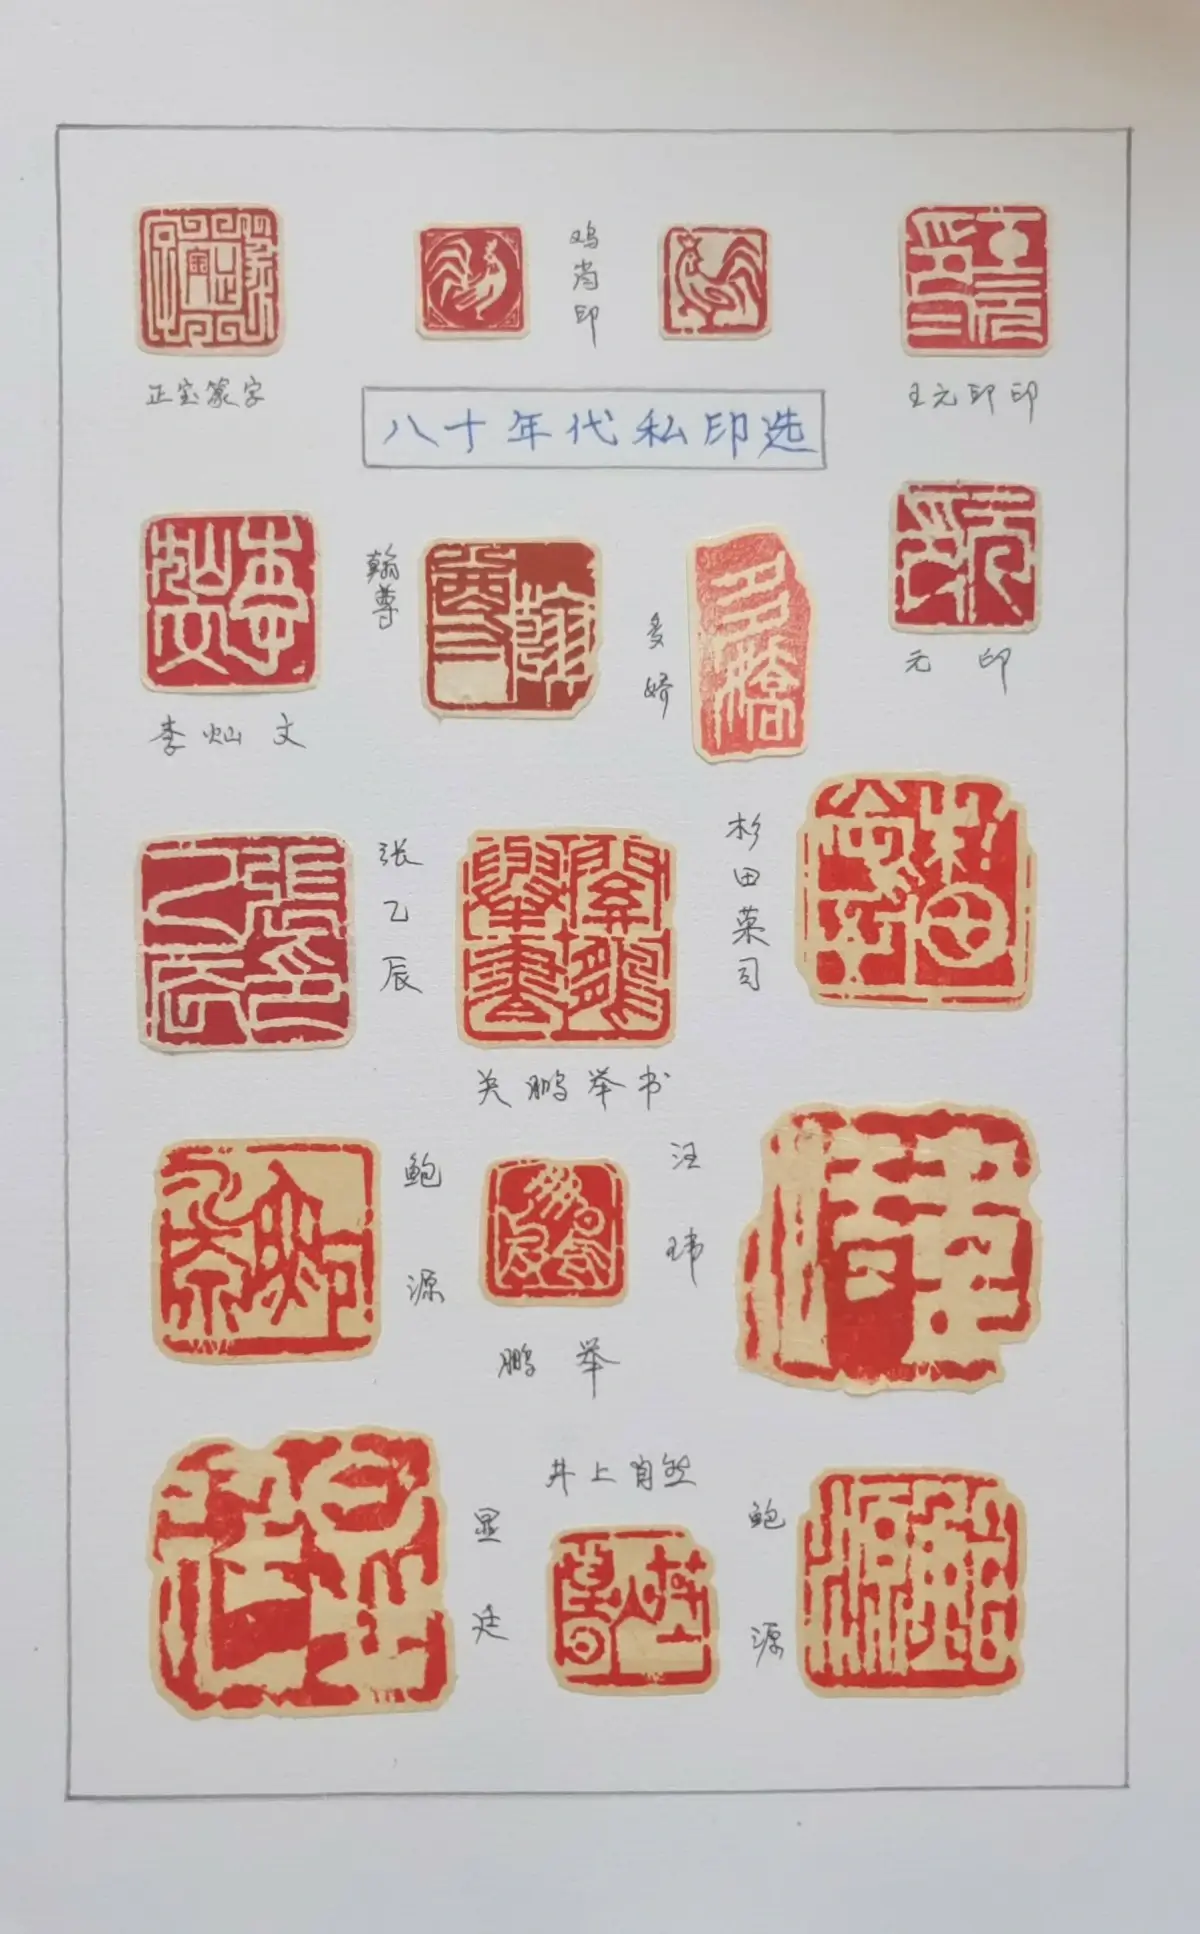 鸡肖印
正宝篆字
王元印印
八十年代私印选
翰尊
多娇
元 印
李灿文
张乙辰
杉田菜司
关鹏举书
鲍源
汪玮
鹏举
井上自然
显廷
鲍源